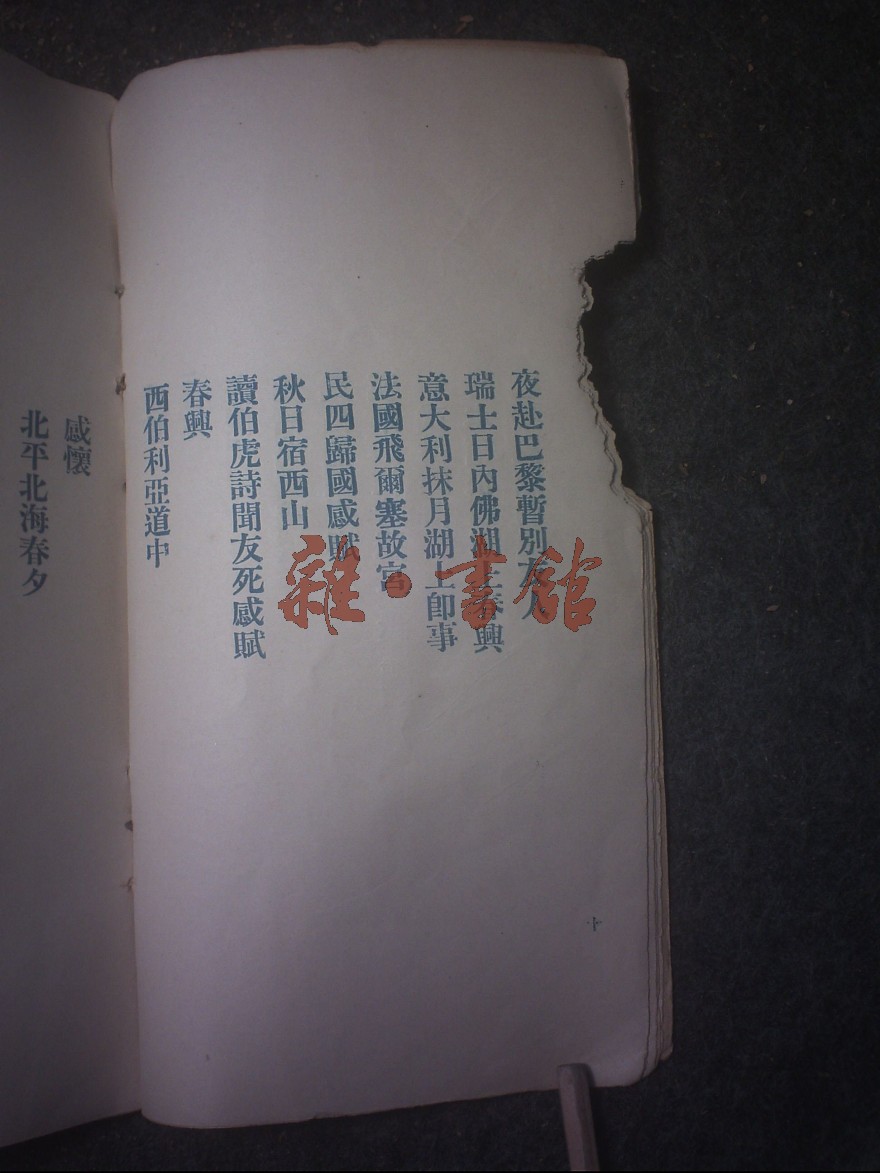 夜赴巴黎暫別友人
瑞士日內佛湖上春興
意大利抹月湖上卽事
法國飛爾塞故宮
民四歸國感賦
秋日宿西山
讀伯虎詩聞友死感賦
春興
西伯利亞道中
十
感懷
北平北海春夕
雜·書館